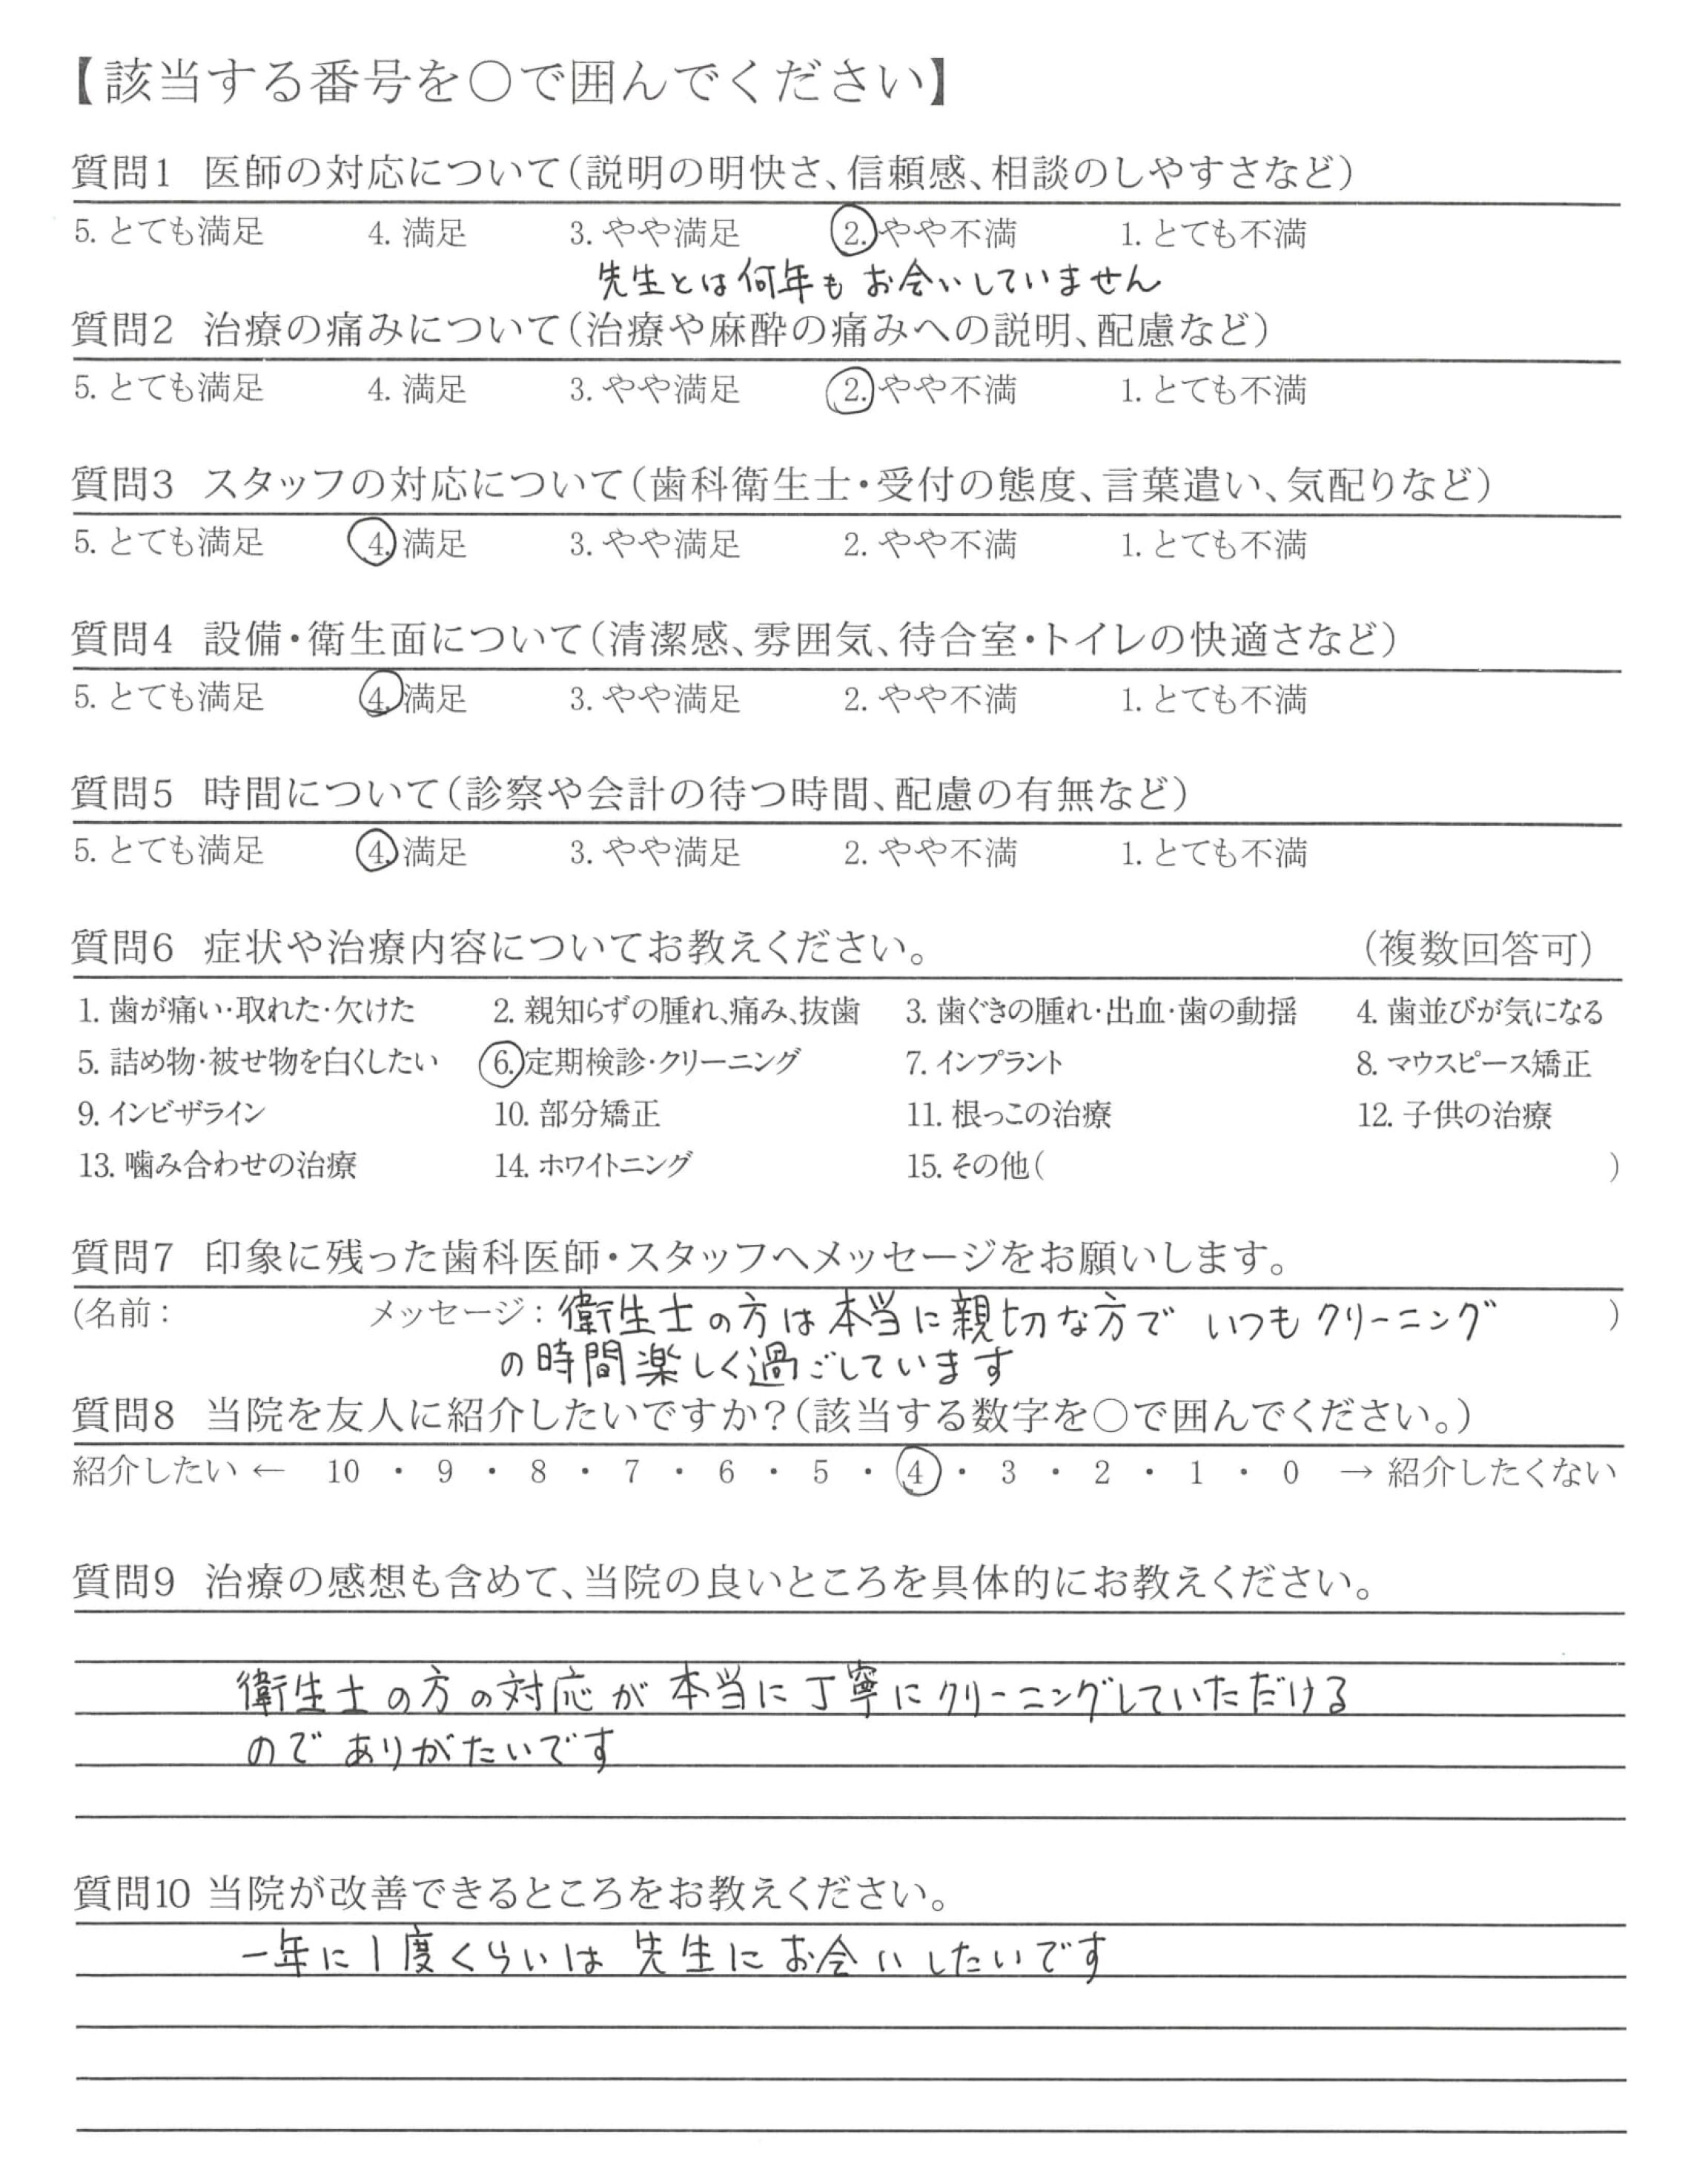 【該当する番号を○で囲んでください】
質問1 医師の対応について（説明の明快さ、信頼感、相談のしやすさなど）
5. とても満足 4. 満足 3. やや満足 2. やや不満 1. とても不満
先生とは何年もお会いしていません
質問2 治療の痛みについて（治療や麻酔の痛みへの説明、配慮など）
5. とても満足 4. 満足 3. やや満足 2. やや不満 1. とても不満
質問3 スタッフの対応について（歯科衛生士・受付の態度、言葉遣い、気配りなど）
5. とても満足 4. 満足 3. やや満足 2. やや不満 1. とても不満
質問4 設備・衛生面について（清潔感、雰囲気、待合室・トイレの快適さなど）
5. とても満足 4. 満足 3. やや満足 2. やや不満 1. とても不満
質問5 時間について（診察や会計の待つ時間、配慮の有無など）
5. とても満足 4. 満足 3. やや満足 2. やや不満 1. とても不満
質問6 症状や治療内容についてお教えください。 （複数回答可）
1. 歯が痛い・取れた・欠けた 2. 親知らずの腫れ、痛み、抜歯 3. 歯ぐきの腫れ・出血・歯の動揺 4. 歯並びが気になる
5. 詰め物・被せ物を白くしたい 6. 定期検診・クリーニング 7. インプラント 8. マウスピース矯正
9. インビザライン 10. 部分矯正 11. 根っこの治療 12. 子供の治療
13. 噛み合わせの治療 14. ホワイトニング 15. その他（ ）
質問7 印象に残った歯科医師・スタッフへメッセージをお願いします。
（名前： メッセージ：衛生士の方は本当に親切な方で いつもクリーニング ）
の時間楽しく過ごしています
質問8 当院を友人に紹介したいですか？（該当する数字を○で囲んでください。）
紹介したい ← 10 ・ 9 ・ 8 ・ 7 ・ 6 ・ 5 ・ 4 ・ 3 ・ 2 ・ 1 ・ 0 → 紹介したくない
質問9 治療の感想も含めて、当院の良いところを具体的にお教えください。
衛生士の方の対応が本当に丁寧にクリーニングしていただける
のでありがたいです
質問10 当院が改善できるところをお教えください。
一年に1度くらいは先生にお会いしたいです